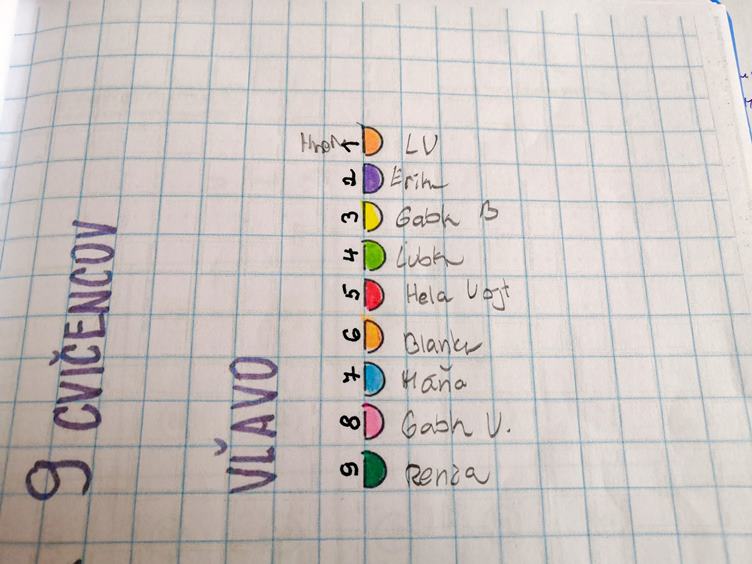 9 CVIČENCOV
VĽAVO
1 LV
2 Erik
3 Gabk B
4 Lubk
5 Hela Vojt
6 Blank
7 Háňa
8 Gabk V.
9 Renza